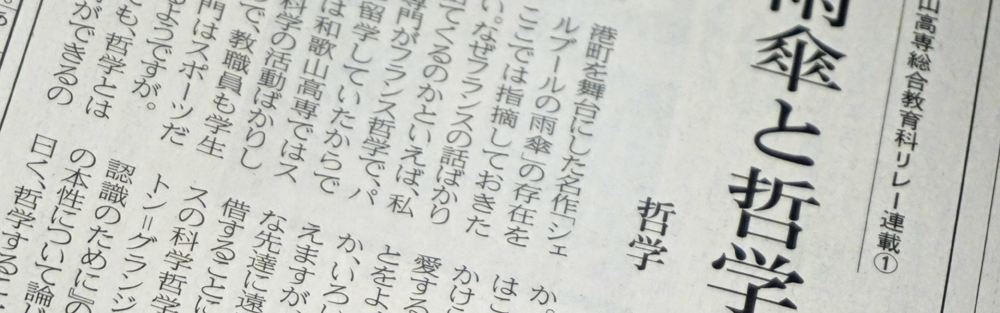 山高専総合教育科リレー連載①
雨傘と哲学
哲学
港町を舞台にした名作「シェ
ルブールの雨傘」の存在を
ここでは指摘しておきた
い。なぜフランスの話ばかり
出てくるのかといえば、私
専門がフランス哲学で、パ
留学していたからで
は和歌山高専ではス
科学の活動ばかりし
で、教職員も学生
門はスポーツだ
ようですが。
も、哲学とは
ができるの
か。
はこ
かけ
愛する
とをよ
か、いろい
えますが、
な先達に遠
借することに
スの科学哲学
トン=グランジ
認識のために』の
の本性について論じ
曰く、哲学するこ